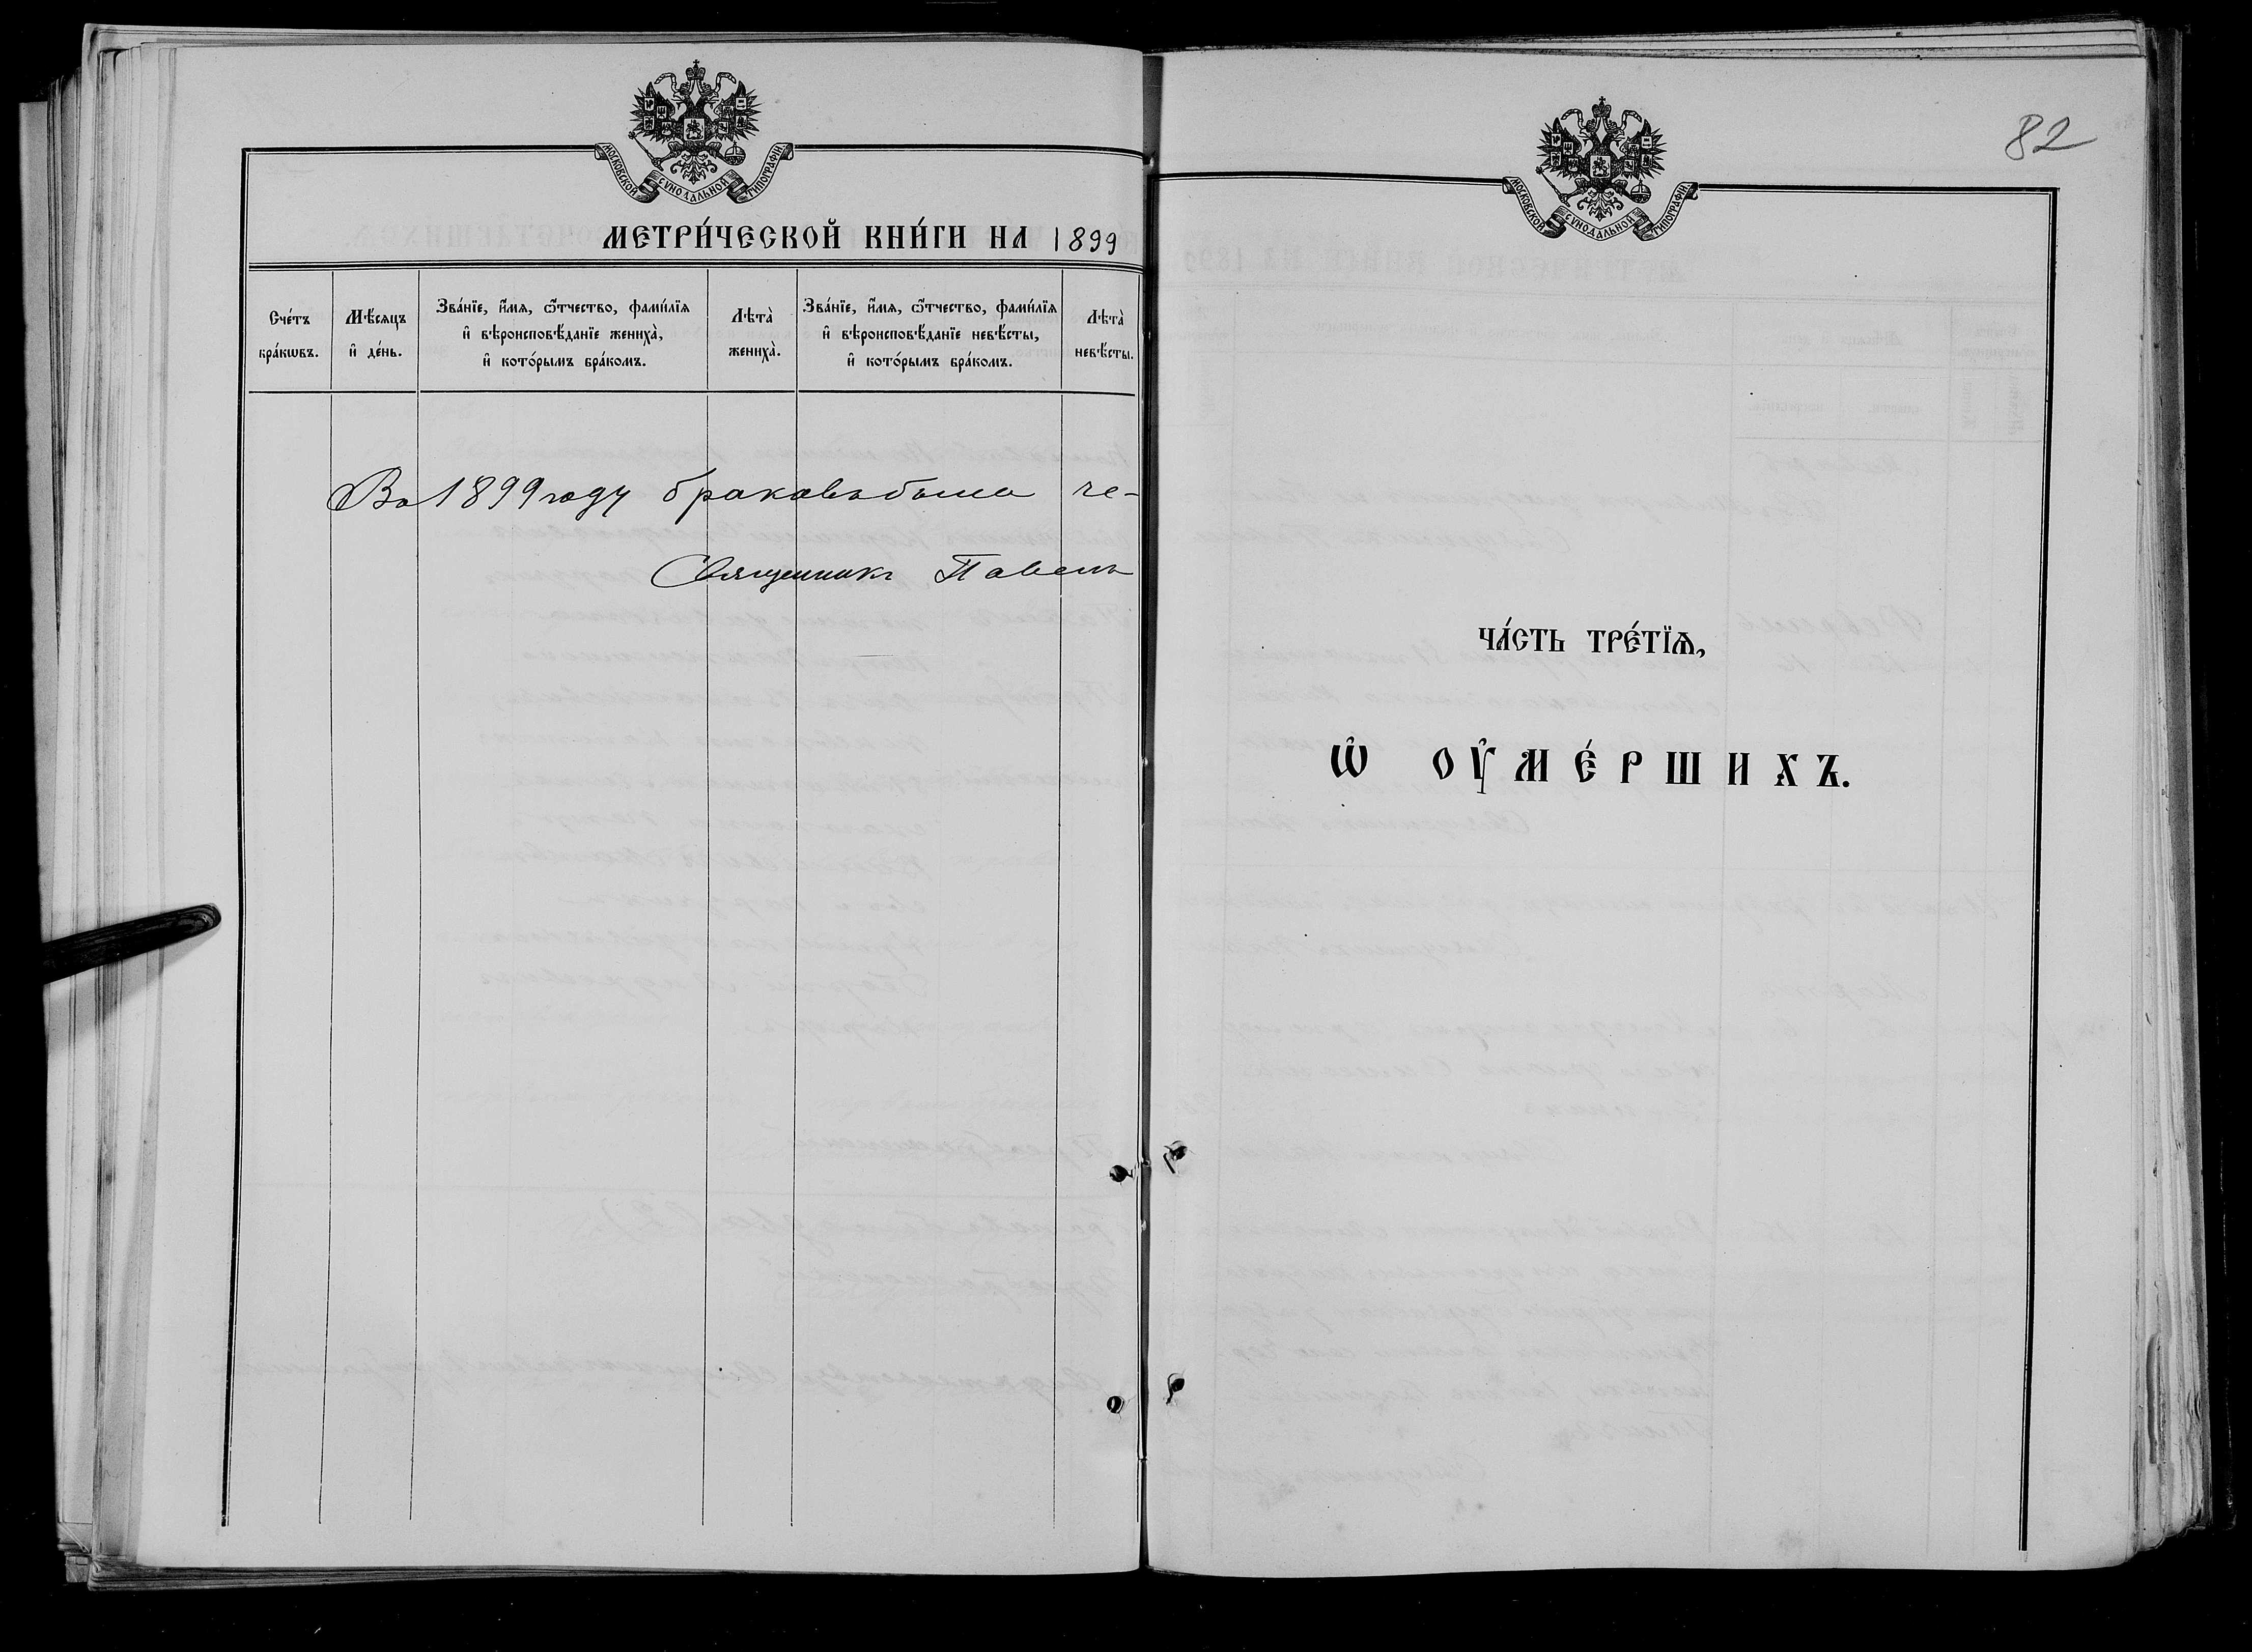 МОСКОВСКОЙ СѴНОДАЛЬНОЙ ТИПОГРАФІИ
МЕТРИ́ЧЕСКОЙ КНИ́ГИ НА 1899
Сче́тъ
бра́кѡвъ.
Мѣ́сяцъ
и҆ де́нь.
Зва́нїе, и҆́мѧ, ѻ҆́тчество, фами́лїѧ
и҆ вѣроисповѣ́данїе жениха̀,
и҆ кото́рымъ бра́комъ.
Лѣта̀
жениха̀.
Зва́нїе, и҆́мѧ, ѻ҆́тчество, фами́лїѧ
и҆ вѣроисповѣ́данїе невѣ́сты,
и҆ кото́рымъ бра́комъ.
Лѣта̀
невѣ́сты.
Въ 1899 году браковъ было че-
Священникъ Павелъ
82
МОСКОВСКОЙ СѴНОДАЛЬНОЙ ТИПОГРАФІИ
ЧА́СТЬ ТРЕ́ТЇѦ,
Ѡ҆ ОУ҆МЕ́РШИХЪ.